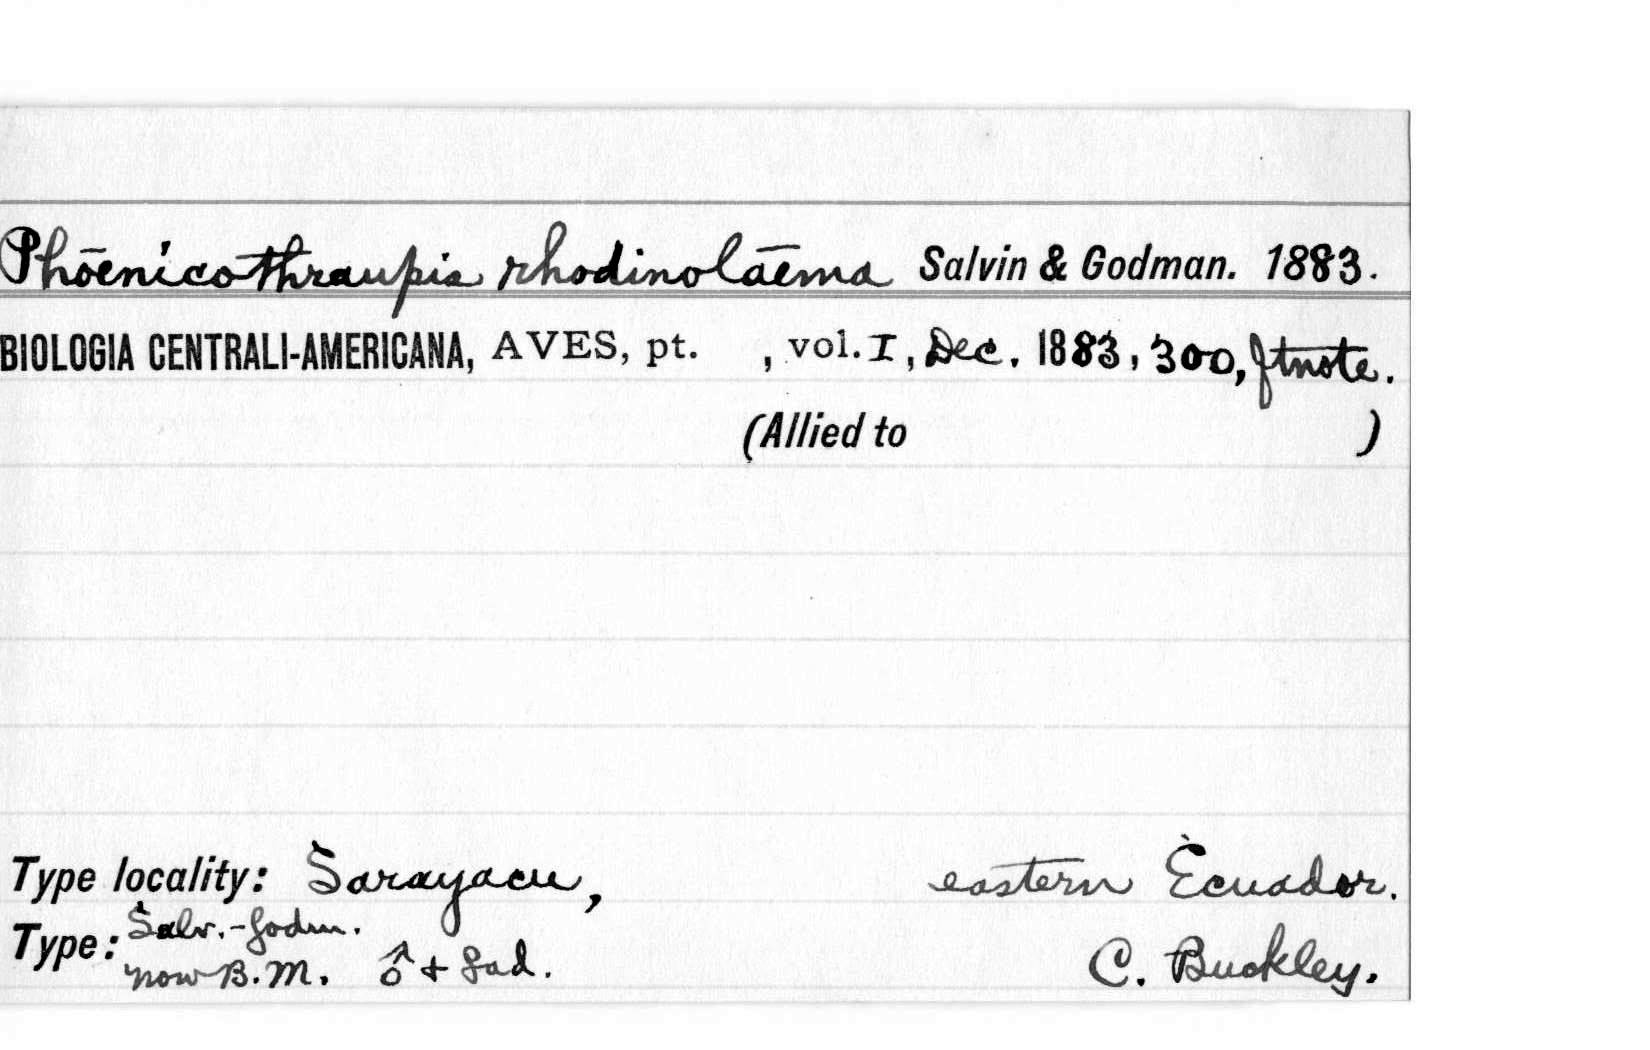 Phōenicothraupis rhodinolāema Salvin & Godman. 1883.
BIOLOGIA CENTRALI-AMERICANA, AVES, pt. , vol. I, Dec. 1883, 300, ftnote.
(Allied to )
Type locality: Sarayacu, eastern Ecuador.
Type: Salv.-Godm.
now B.M. ♂ + ♀ ad. C. Buckley.